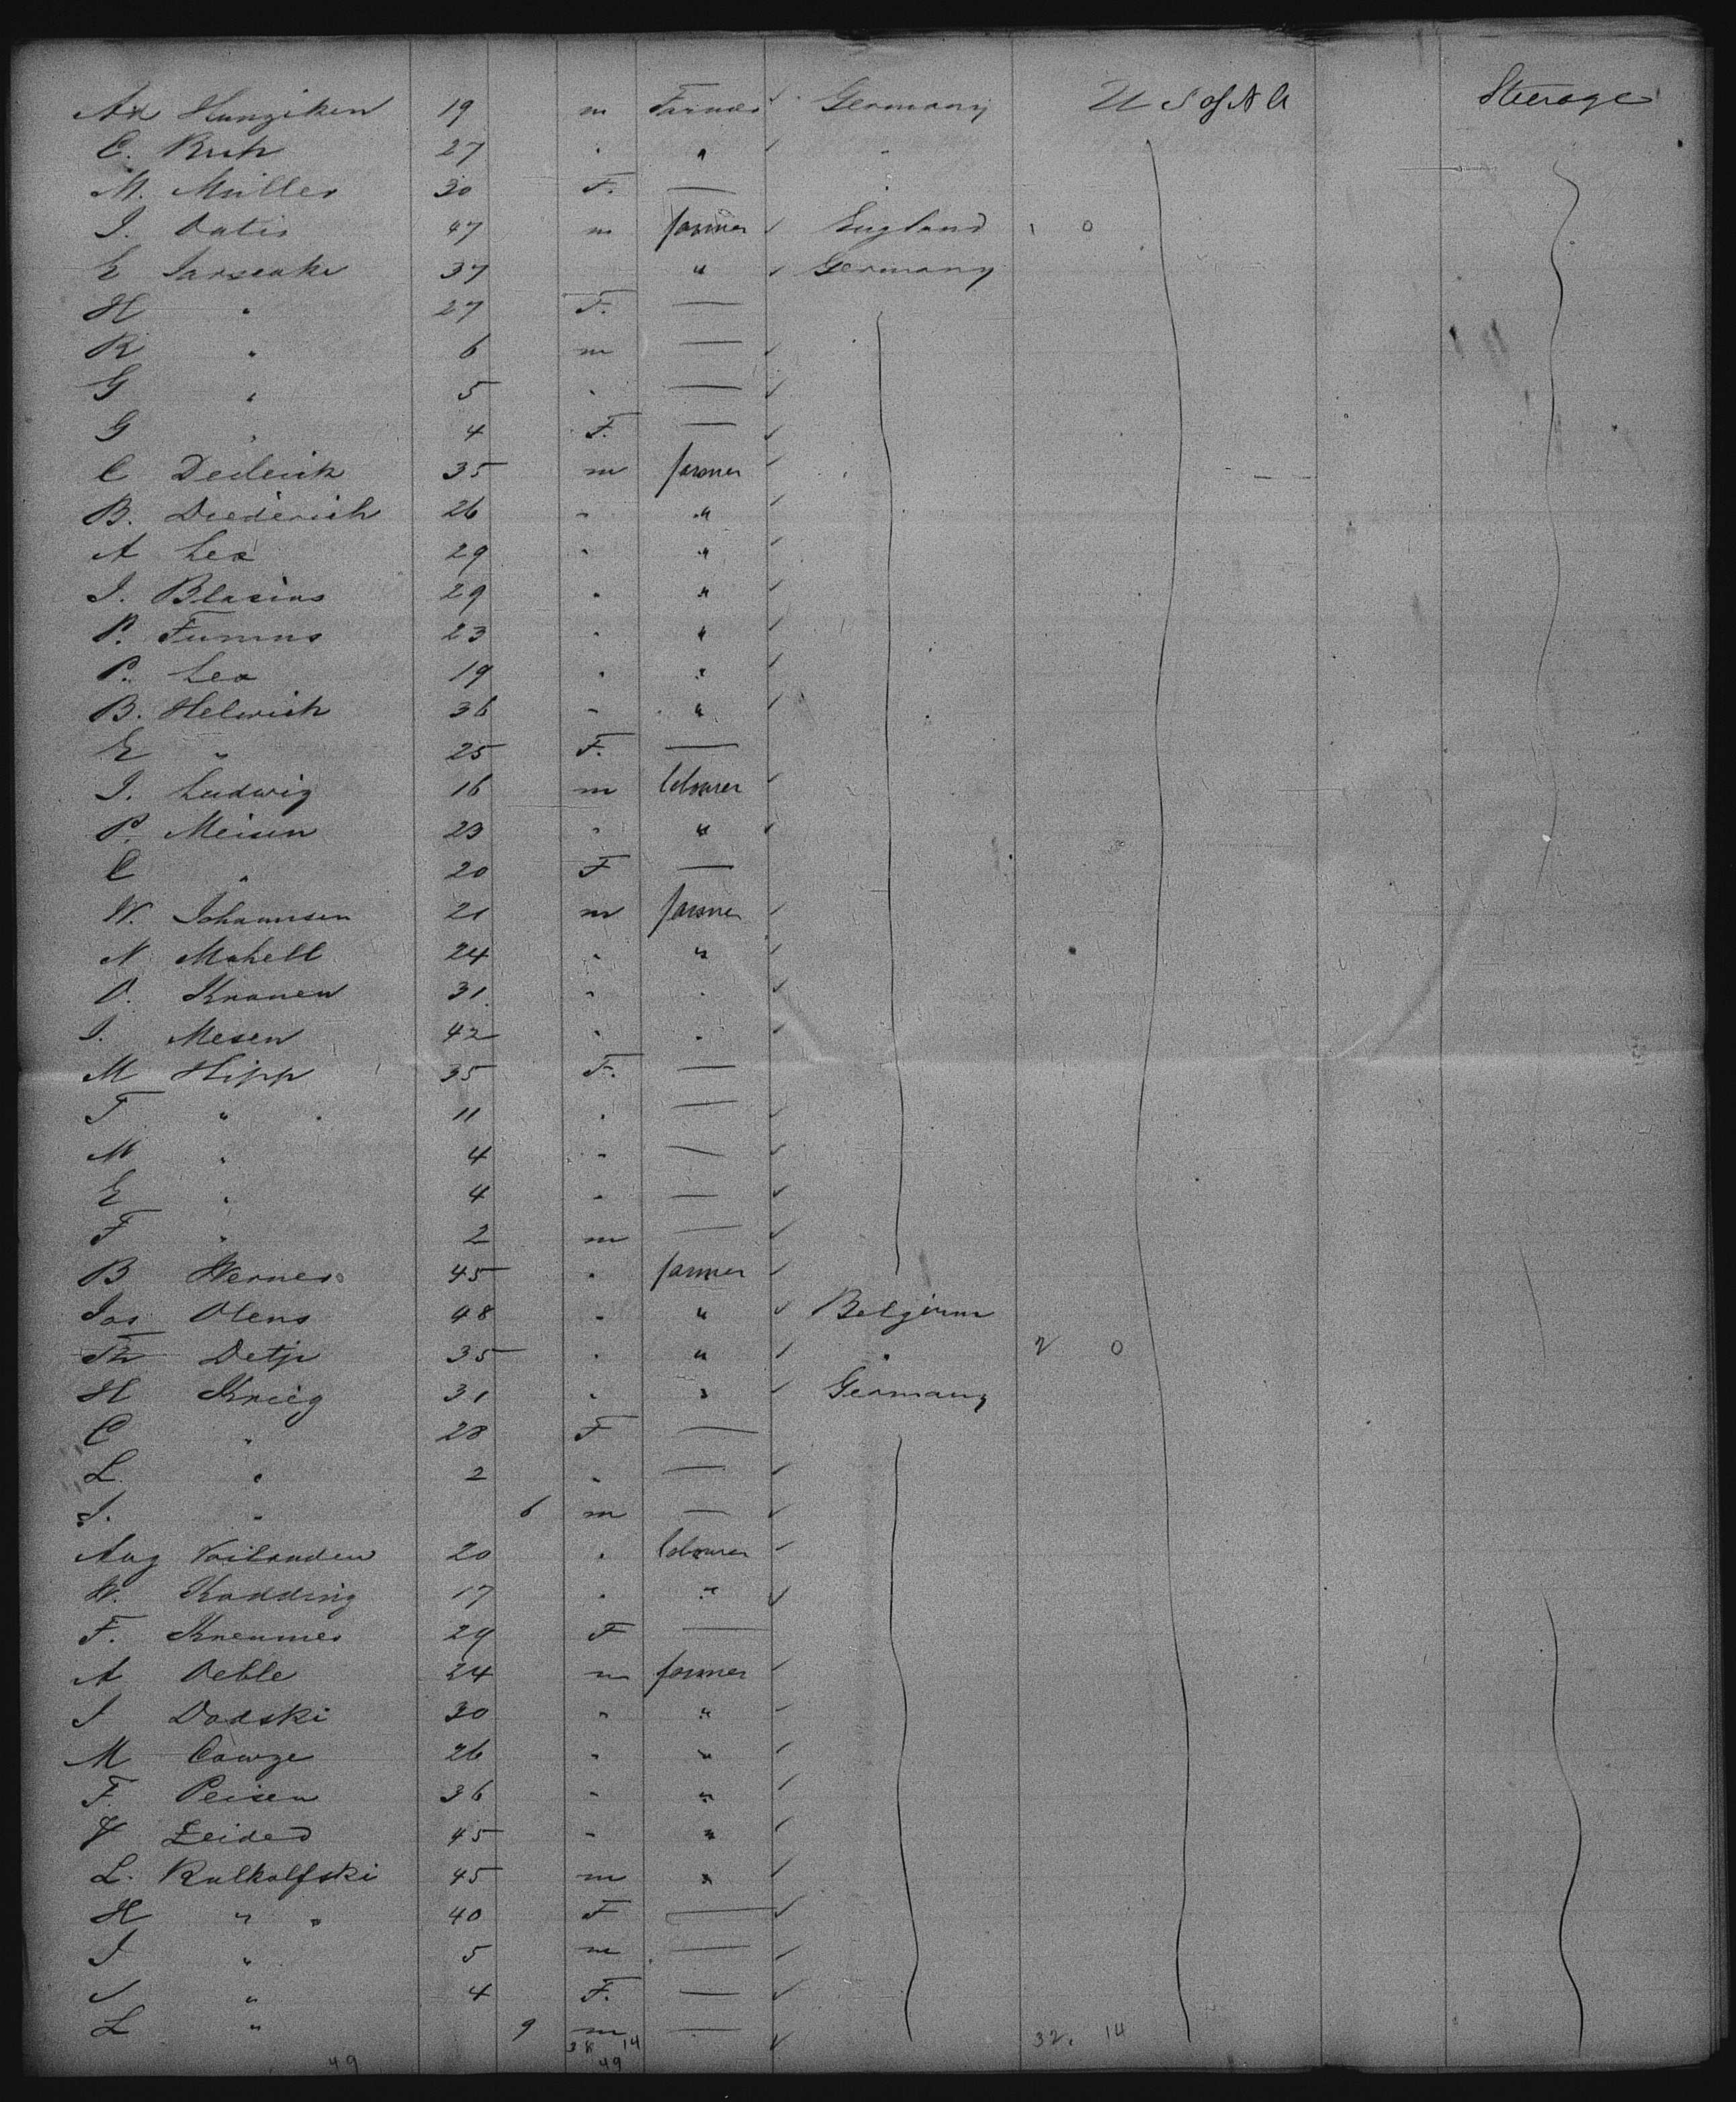 Ad Hunziken 19 m Farmer ✓ Germany U S of N A Steerage
C. Ruh 27 " " ✓ "
M. Müller 30 F. — "
I. Oatis 47 m farmer ✓ England 1 0
E 37 " ✓ Germany
H " 27 F. —
R " 6 m — ✓
G " 5 " — ✓
G " 4 F. — ✓
C Dederik 35 m farmer ✓
B. Diederich 26 " " ✓
A Lex 29 " " ✓
I. Blasius 29 " " ✓
P. Fumms 23 " " ✓
P. Lex 19 " " ✓
B. Helwich 36 " " ✓
E " 25 F. —
I. Ludwig 16 m labourer ✓
P. Meisen 23 " " ✓
C " 20 F —
W. Johannsen 21 m farmer ✓
N Mohell 24 " " ✓
O. Kronen 31 " " ✓
I. Mesen 42 " " ✓
M Hipp 35 F. —
T " 11 " — ✓
M " 4 " — ✓
E " 4 " — ✓
F " 2 m — ✓
B Werner 45 " farmer ✓
Jos Olens 48 " " ✓ Belgium
Th Detje 35 " " ✓ " 2 0
H Krieg 31 " " ✓ Germany
C " 28 F —
L. " 2 " — ✓
I. " 6 m — ✓
Aug Voilanden 20 " labourer ✓
W. Kodding 17 " " ✓
F. Kremmer 29 F —
A Oeble 24 m farmer ✓
I Dodski 30 " " ✓
M Cowze 26 " " ✓
F. Peisen 36 " " ✓
V Zeider 45 " " ✓
L. Kulkolfski 45 m " ✓
H " " 40 F — ✓
I " 5 m — ✓
I " 4 F. — ✓
L " 9 m — ✓ 32. 14
38 14
49 49